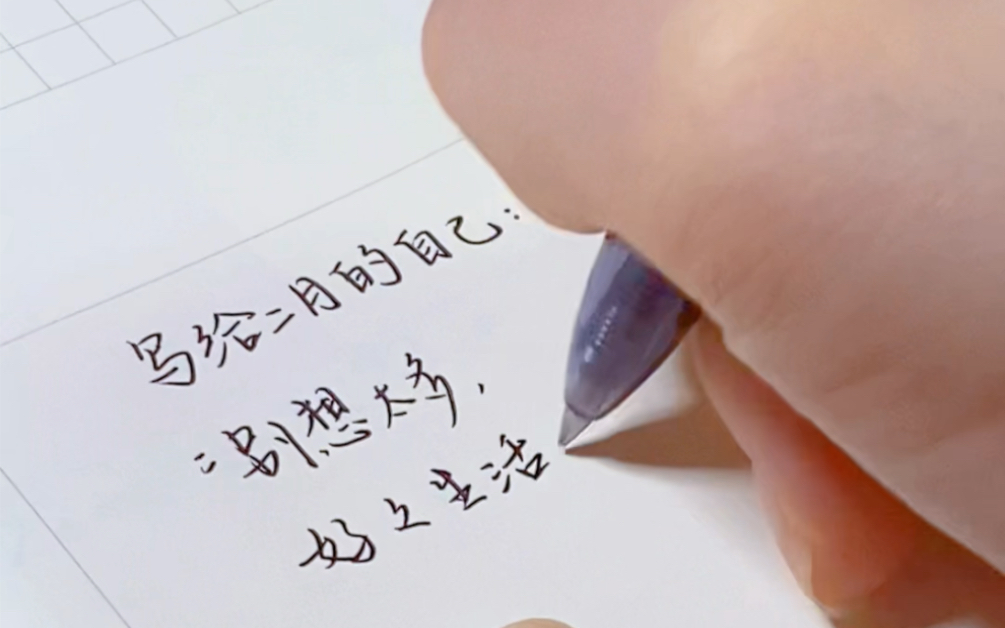 写给二月的自己：
“别想太多，
好好生活